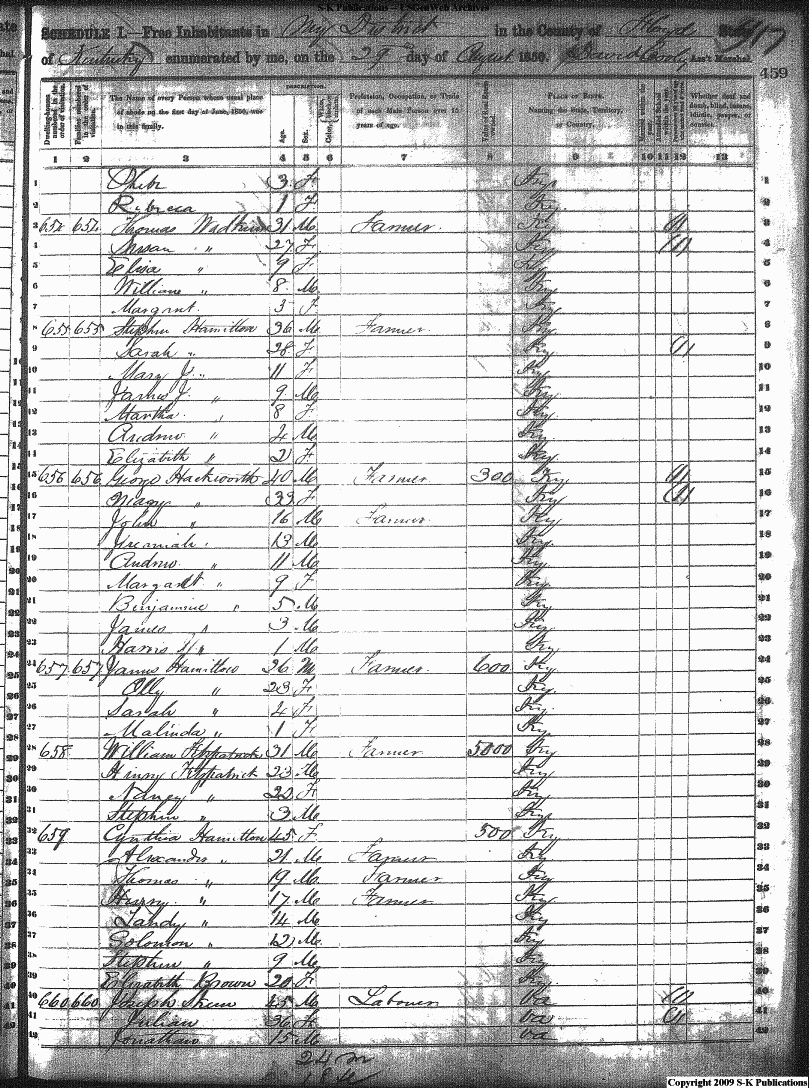 S-K Publications - USGenWeb Archives
SCHEDULE I.—Free Inhabitants in My District in the County of Floyd State
of Kentucky enumerated by me, on the 29 day of August 1850. David Cooly Ass't Marshal.
459
DESCRIPTION.
Dwelling-houses numbered in the order of visitation.
Families numbered in the order of visitation.
The Name of every Person whose usual place of abode on the first day of June, 1850, was in this family.
Age.
Sex.
Profession, Occupation, or Trade of each Male Person over 15 years of age.
Value of Real Estate owned.
PLACE OF BIRTH.
Naming the State, Territory, or Country.
Married within the year.
Whether deaf and dumb, blind, insane, idiotic, pauper, or convict.
1 2 3 4 5 6 7 8 9 10 11 12 13
1 Pheby 3 F Ky 1
2 Rebecca 1 F Ky 2
3 654 654 Thomas 31 M Farmer Ky 3
4 Susan " 27 F Ky 4
5 Elisa " 9 F Ky 5
6 William " 8 M Ky 6
7 Margaret 3 F Ky 7
8 655 655 Stephen Hamilton 36 M Farmer Ky 8
9 Sarah " 28 F Ky 9
10 Mary J. " 11 F Ky 10
11 James J. " 9 M Ky 11
12 Martha " 8 F Ky 12
13 Andrew " 4 M Ky 13
14 Elizabeth " 2 F Ky 14
15 656 656 George Hackworth 40 M Farmer 300 Ky 15
16 Mary " 33 F Ky 16
17 John " 16 M Farmer Ky 17
18 Jeremiah " 13 M Ky 18
19 Andrew " 11 M Ky 19
20 Margaret " 9 F Ky 20
21 Benjamine " 5 M Ky 21
22 James " 3 M Ky 22
23 Harris " 1 M Ky 23
24 657 657 James Hamilton 26 M Farmer 600 Ky 24
25 Olly " 23 F Ky 25
26 Sarah " 4 F Ky 26
27 Malinda " 1 F Ky 27
28 658 William Fitzpatrick 31 M Farmer 5000 Ky 28
29 Henry Fitzpatrick 23 M Ky 29
30 Nancy " 22 F Ky 30
31 Stephen " 3 M Ky 31
32 659 Cynthia Hamilton 45 F 500 Ky 32
33 Alexander " 21 M Farmer Ky 33
34 Thomas " 19 M Farmer Ky 34
35 Henry " 17 M Farmer Ky 35
36 Landy " 14 M Ky 36
37 Solomon " 12 M Ky 37
38 Stephen " 9 M Ky 38
39 Elizabeth Brown 20 F Ky 39
40 660 660 Joseph 45 M Labourer Va 40
41 Julian 36 F Va 41
42 Jonathan 15 M Va 42
24 m
18 f
Copyright 2009 S-K Publications